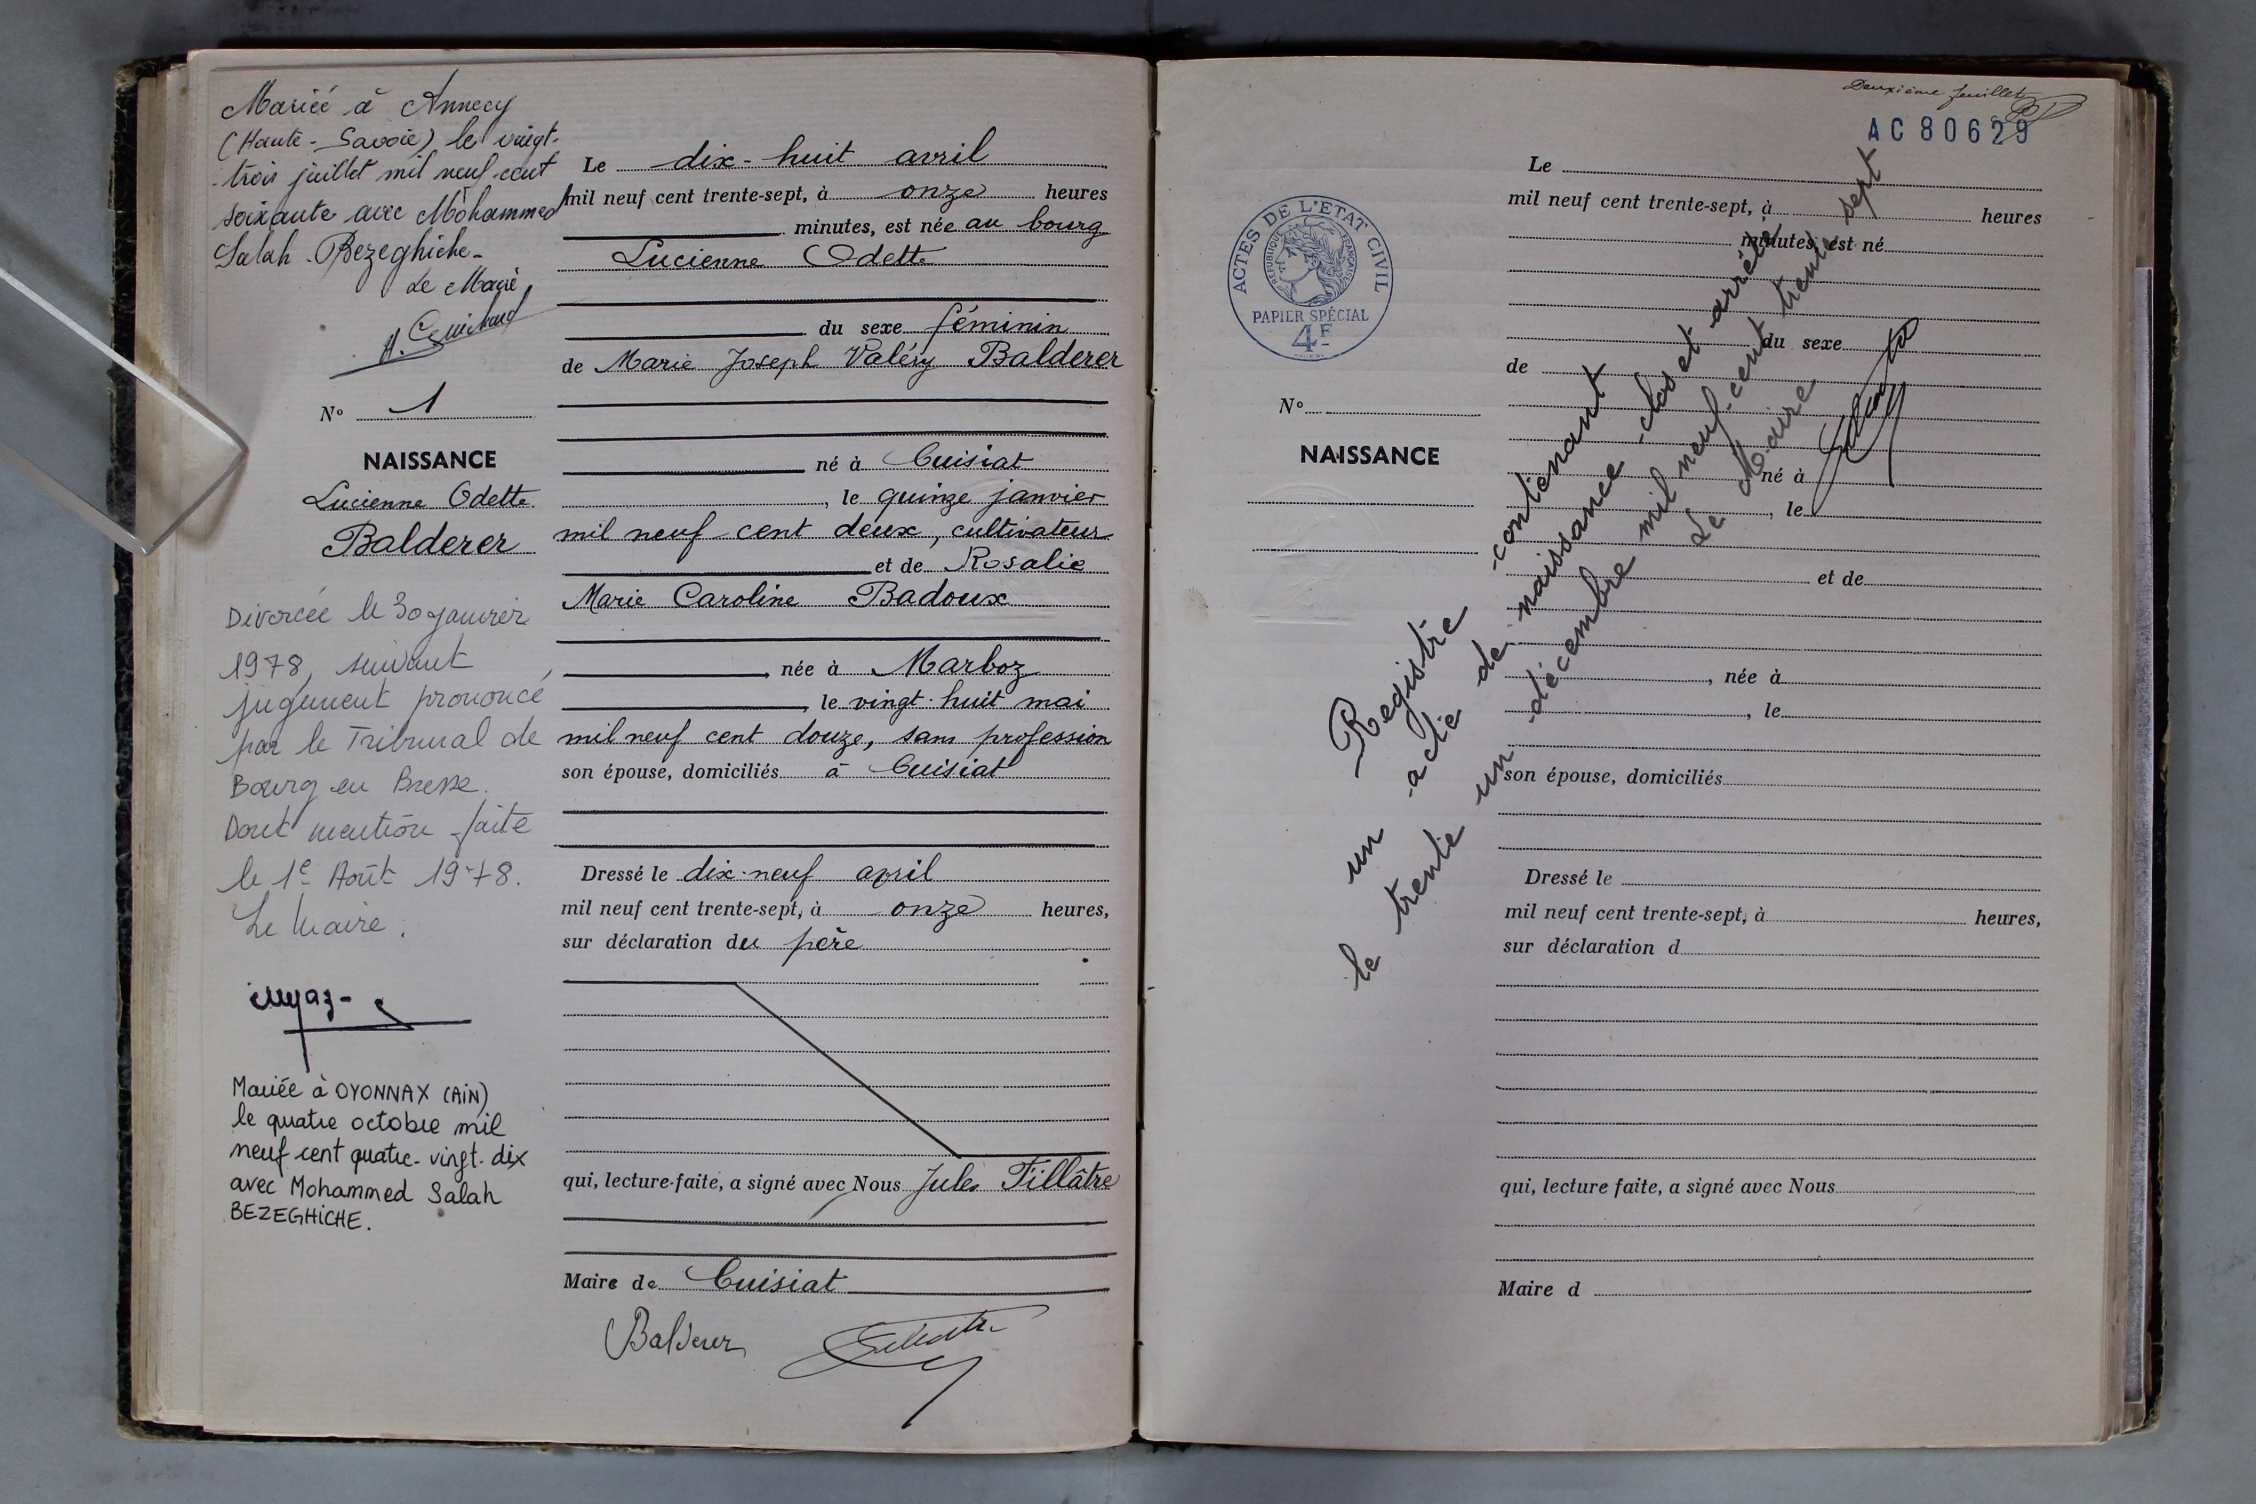 Mariée à Annecy
(Haute-Savoie) le vingt-
trois juillet mil neuf cent
soixante avec Mohammed
Salah Bezeghiche-
Le Maire,
N° 1
NAISSANCE
Lucienne Odette
Balderer
Divorcée le 30 janvier
1978, suivant
jugement prononcé
par le Tribunal de
Bourg en Bresse.
Dont mention faite
le 1e Août 1978.
Le Maire.
Mariée à OYONNAX (AIN)
le quatre octobre mil
neuf cent quatre-vingt-dix
avec Mohammed Salah
BEZEGHICHE.
Le dix-huit avril
mil neuf cent trente-sept, à onze heures
minutes, est née au bourg
Lucienne Odette
du sexe féminin
de Marie Joseph Valéry Balderer
né à Cuisiat
, le quinze janvier
mil neuf cent deux, cultivateur
et de Rosalie
Marie Caroline Badoux
, née à Marboz
, le vingt-huit mai
mil neuf cent douze, sans profession
son épouse, domiciliés à Cuisiat
Dressé le dix-neuf avril
mil neuf cent trente-sept, à onze heures,
sur déclaration du père
qui, lecture faite, a signé avec Nous Jules Fillâtre
Maire de Cuisiat
Balderer
Deuxième feuillet
AC80629
ACTES DE L'ETAT CIVIL
REPUBLIQUE FRANÇAISE
PAPIER SPÉCIAL
4F
N°
NAISSANCE
Le
mil neuf cent trente-sept, à heures
minutes, est né
du sexe
de
né à
, le
et de
, née à
, le
son épouse, domiciliés
Dressé le
mil neuf cent trente-sept, à heures,
sur déclaration d
qui, lecture faite, a signé avec Nous
Maire d
Registre contenant
un acte de naissance clos et arrêté
le trente un décembre mil neuf-cent trente sept
Le Maire